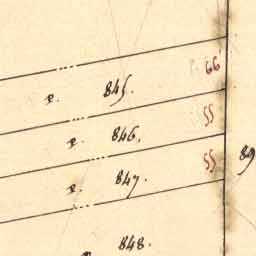 66
e. 845.
55
e. 846.
55
e. 847.
89
848.